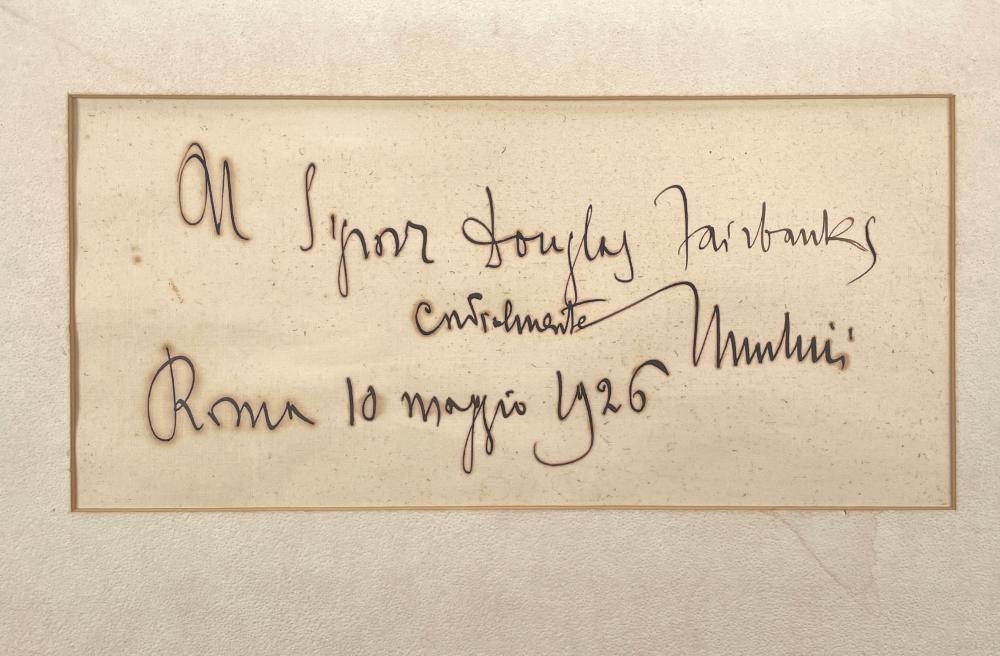 Al Signor Douglas Fairbanks
cordialmente Mussolini
Roma 10 maggio 1926